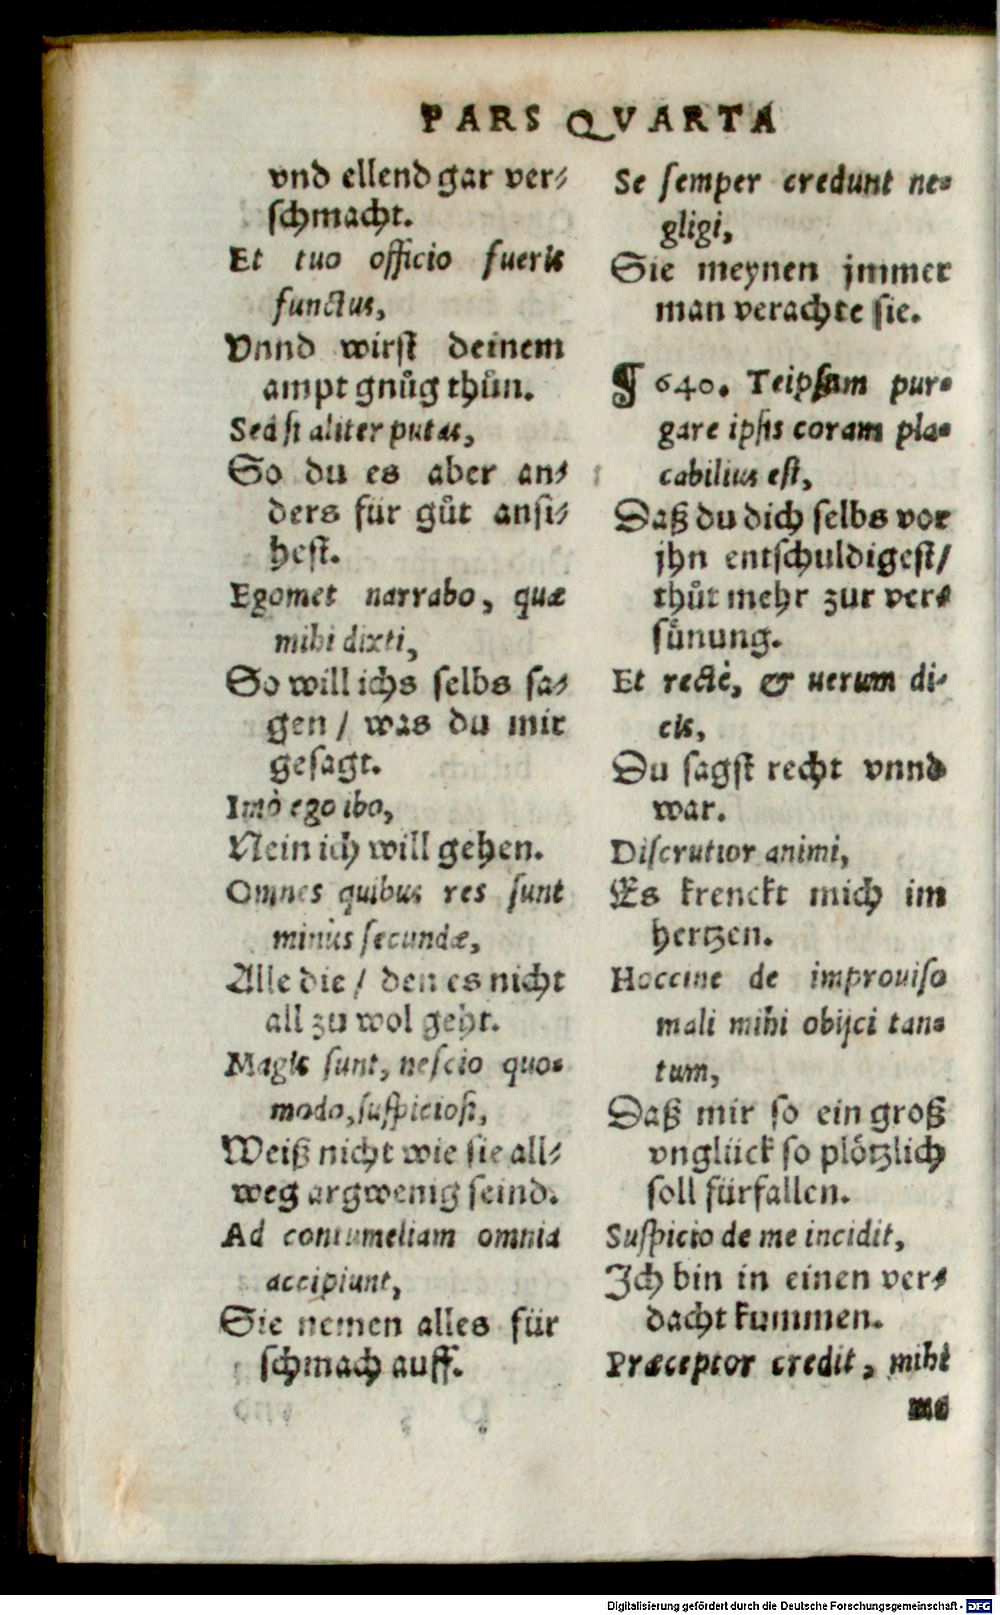 PARS QVARTA
vnd ellend gar ver⸗
schmacht.
Et tuo officio fueris
functus,
Vnnd wirst deinem
ampt gnůg thůn.
Sed si aliter putas,
So du es aber an⸗
ders für gůt ansi⸗
hest.
Egomet narrabo, quæ
mihi dixti,
So will ichs selbs sa⸗
gen / was du mir
gesagt.
Imò ego ibo,
Nein ich will gehen.
Omnes quibus res sunt
minùs secundæ,
Alle die / den es nicht
all zu wol geht.
Magis sunt, nescio quo⸗
modo, suspiciosi,
Weiß nicht wie sie all⸗
weg argwenig seind.
Ad contumeliam omnia
accipiunt,
Sie nemen alles für
schmach auff.
Se semper credunt ne⸗
gligi,
Sie meynen jmmer
man verachte sie.
¶ 640. Teipsum pur⸗
gare ipsis coram pla⸗
cabilius est,
Daß du dich selbs vor
jhn entschuldigest /
thůt mehr zur ver⸗
sůnung.
Et rectè, & uerum di⸗
cis,
Du sagst recht vnnd
war.
Discrutior animi,
Es krenckt mich im
hertzen.
Hoccine de improuiso
mali mihi obijci tan⸗
tum,
Daß mir so ein groß
vnglück so plötzlich
soll fürfallen.
Suspicio de me incidit,
Ich bin in einen ver⸗
dacht kummen.
Præceptor credit, mihi
me
Digitalisierung gefördert durch die Deutsche Forschungsgemeinschaft - DFG